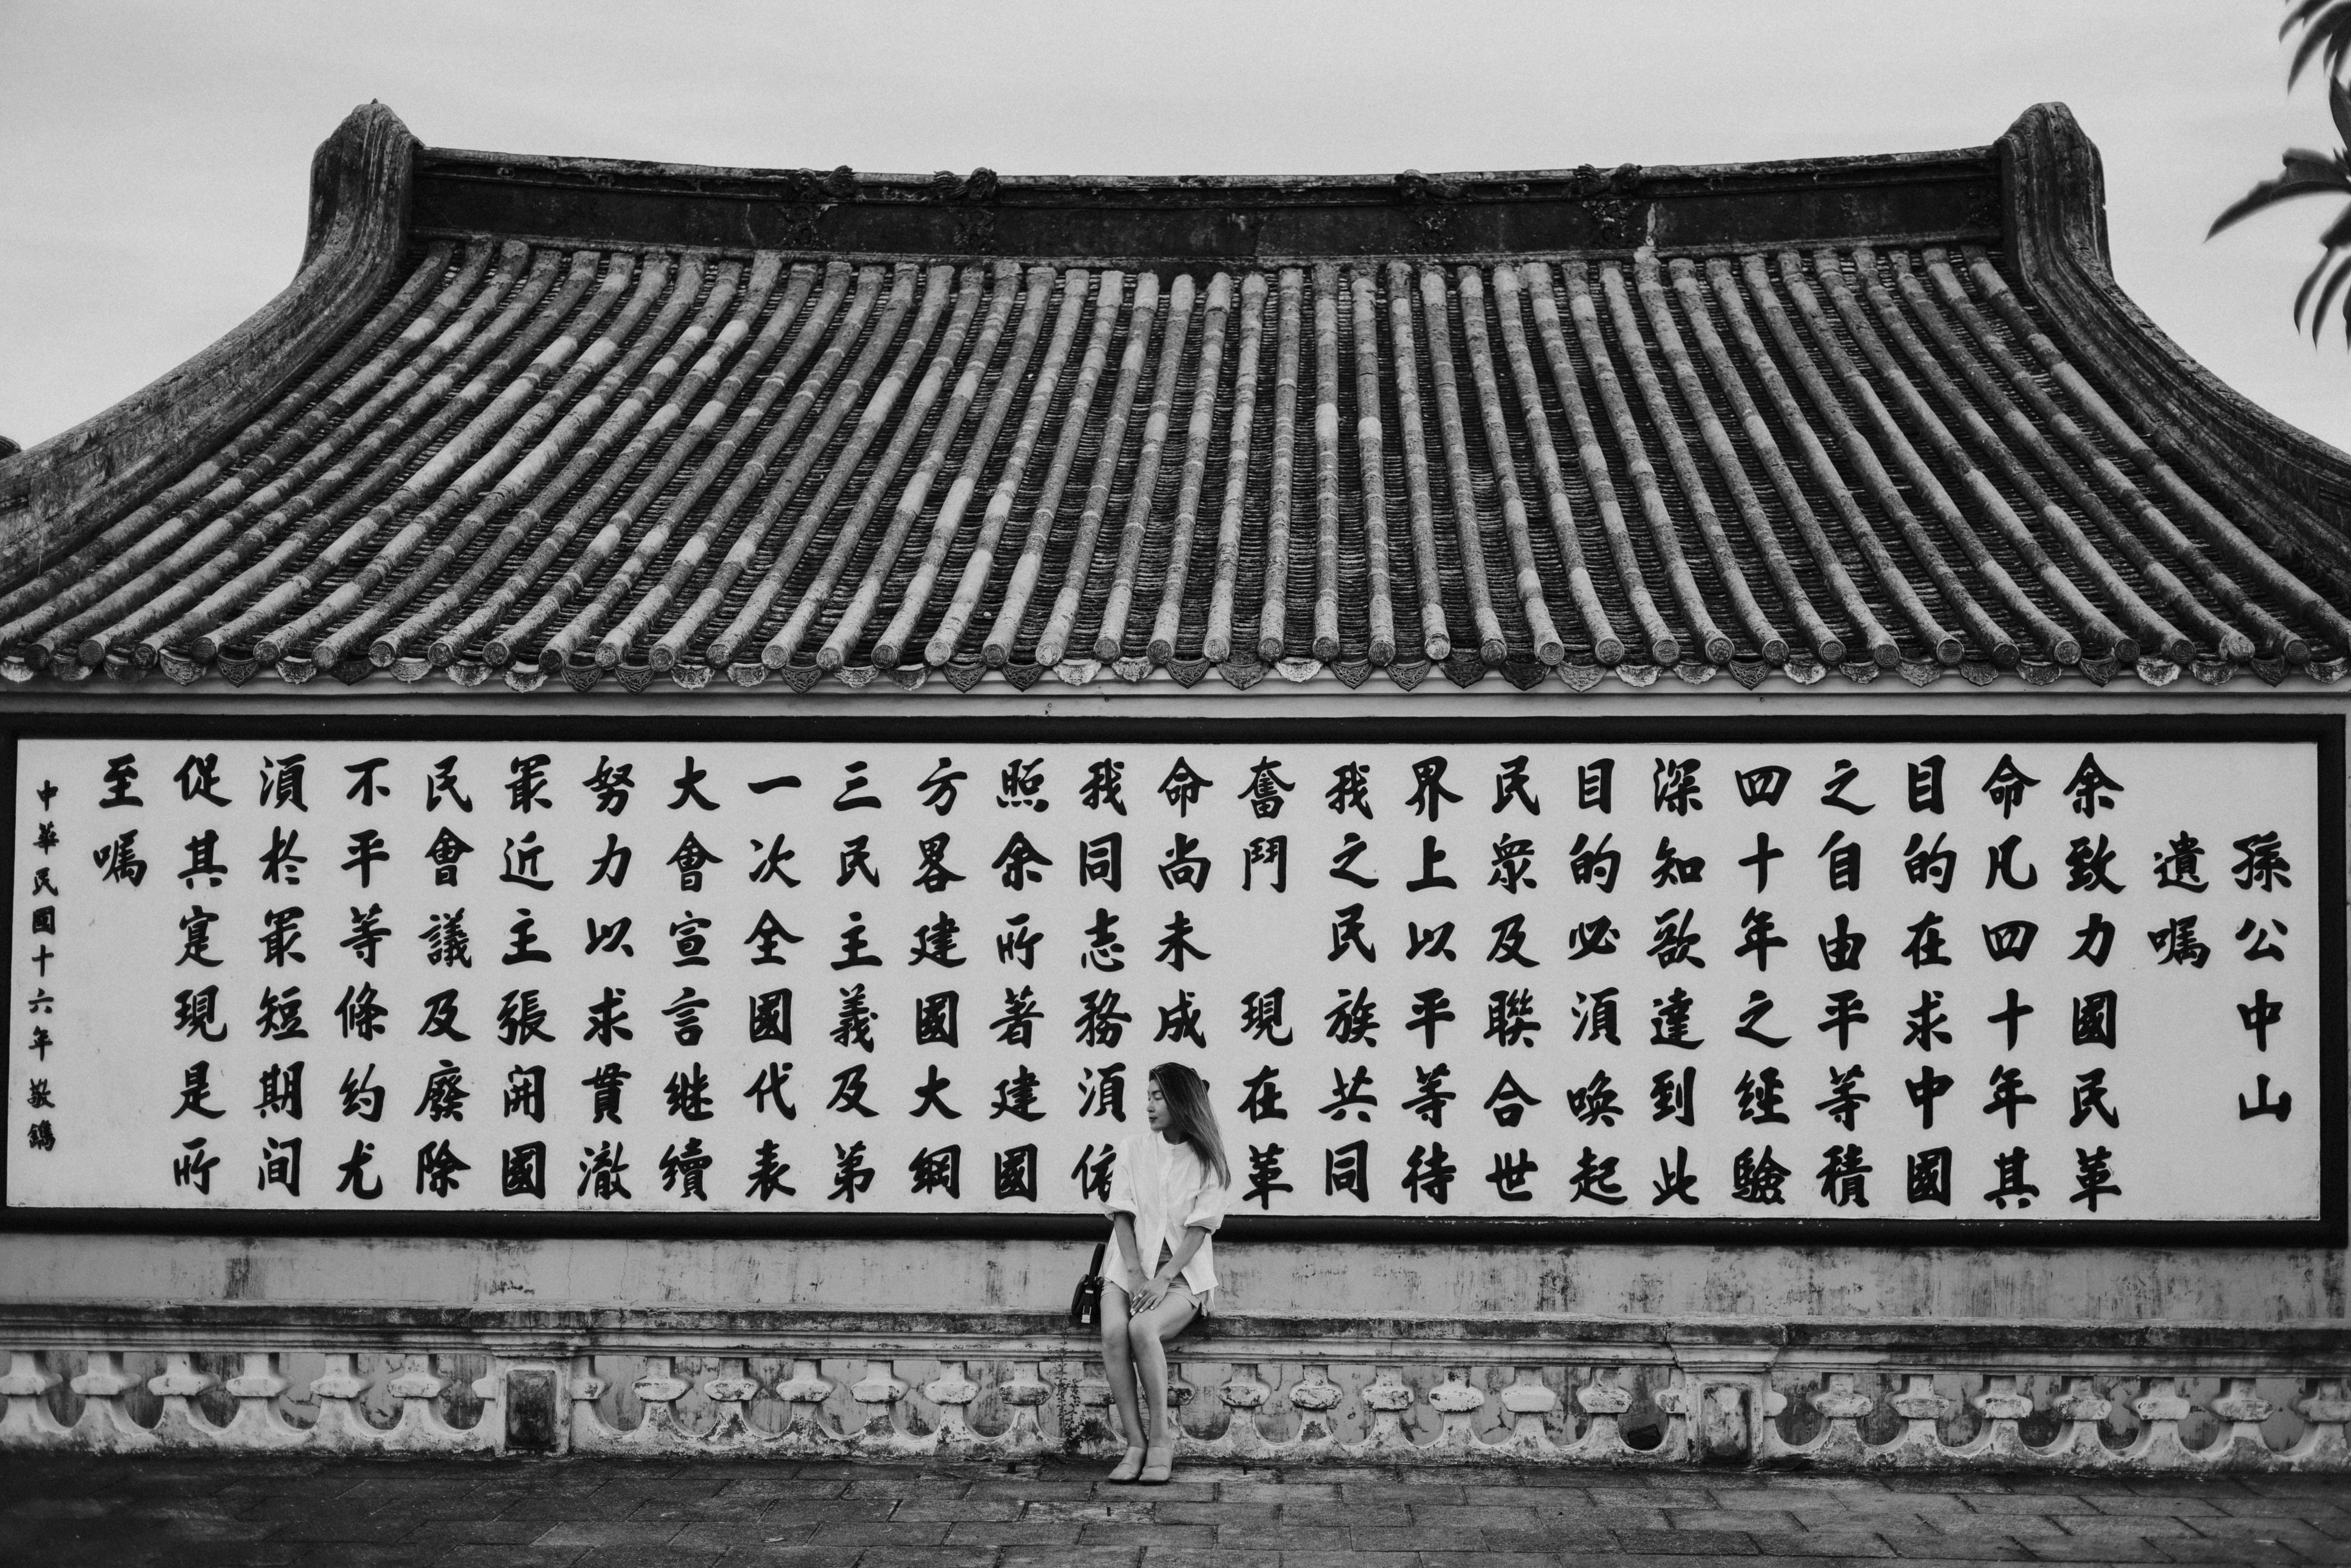 孫公中山
遺囑
余致力國民革
命凡四十年其
目的在求中國
之自由平等積
四十年之經驗
深知欲達到此
目的必須喚起
民衆及聯合世
界上以平等待
我之民族共同
奮鬥 現在革
命尚未成
我同志務須依
照余所著建國
方畧建國大綱
三民主義及第
一次全國代表
大會宣言継續
努力以求貫澈
最近主張開國
民會議及廢除
不平等條約尤
須於最短期间
促其寔現是所
至囑
中華民國十六年敬鐫